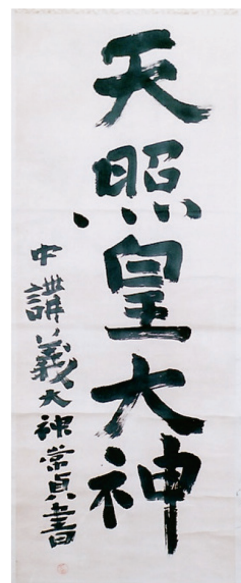 天照皇大神
中講義大神常貞書